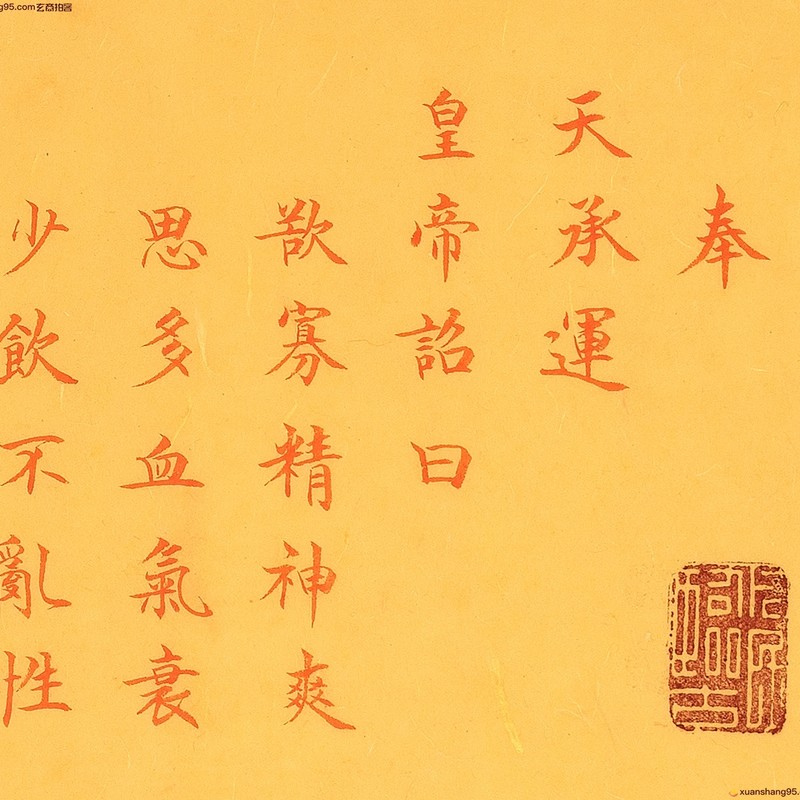 奉
天承運
皇帝詔曰
欲寡精神爽
思多血氣衰
少飲不亂性
g95.com玄商拍客
xuanshang95.